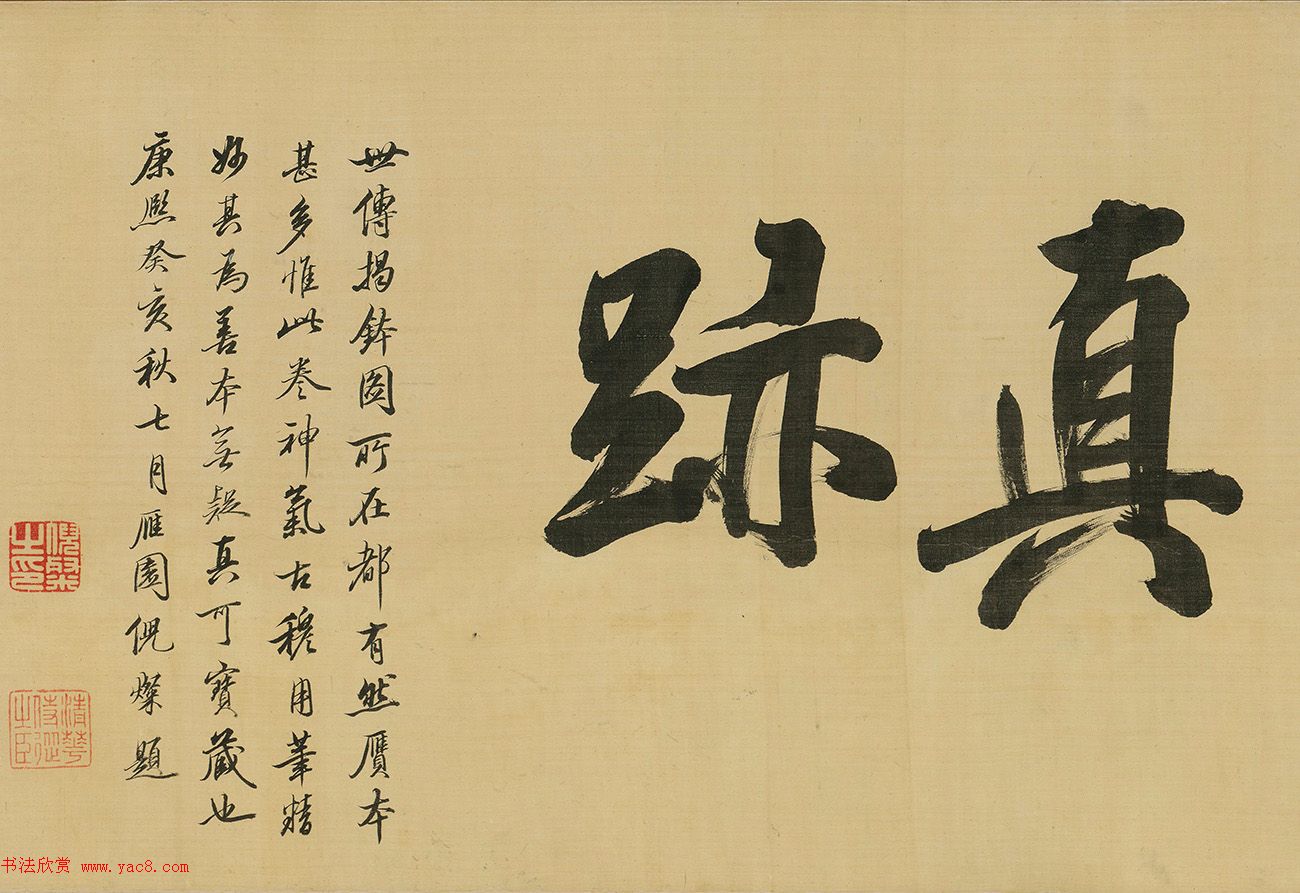 真跡
世傳揭鉢圖所在都有然贋本
甚多惟此卷神氣古穆用筆精
妙其為善本無疑真可寶藏也
康熙癸亥秋七月雁園倪燦題
倪燦之印
書法欣赏 www.yac8.com